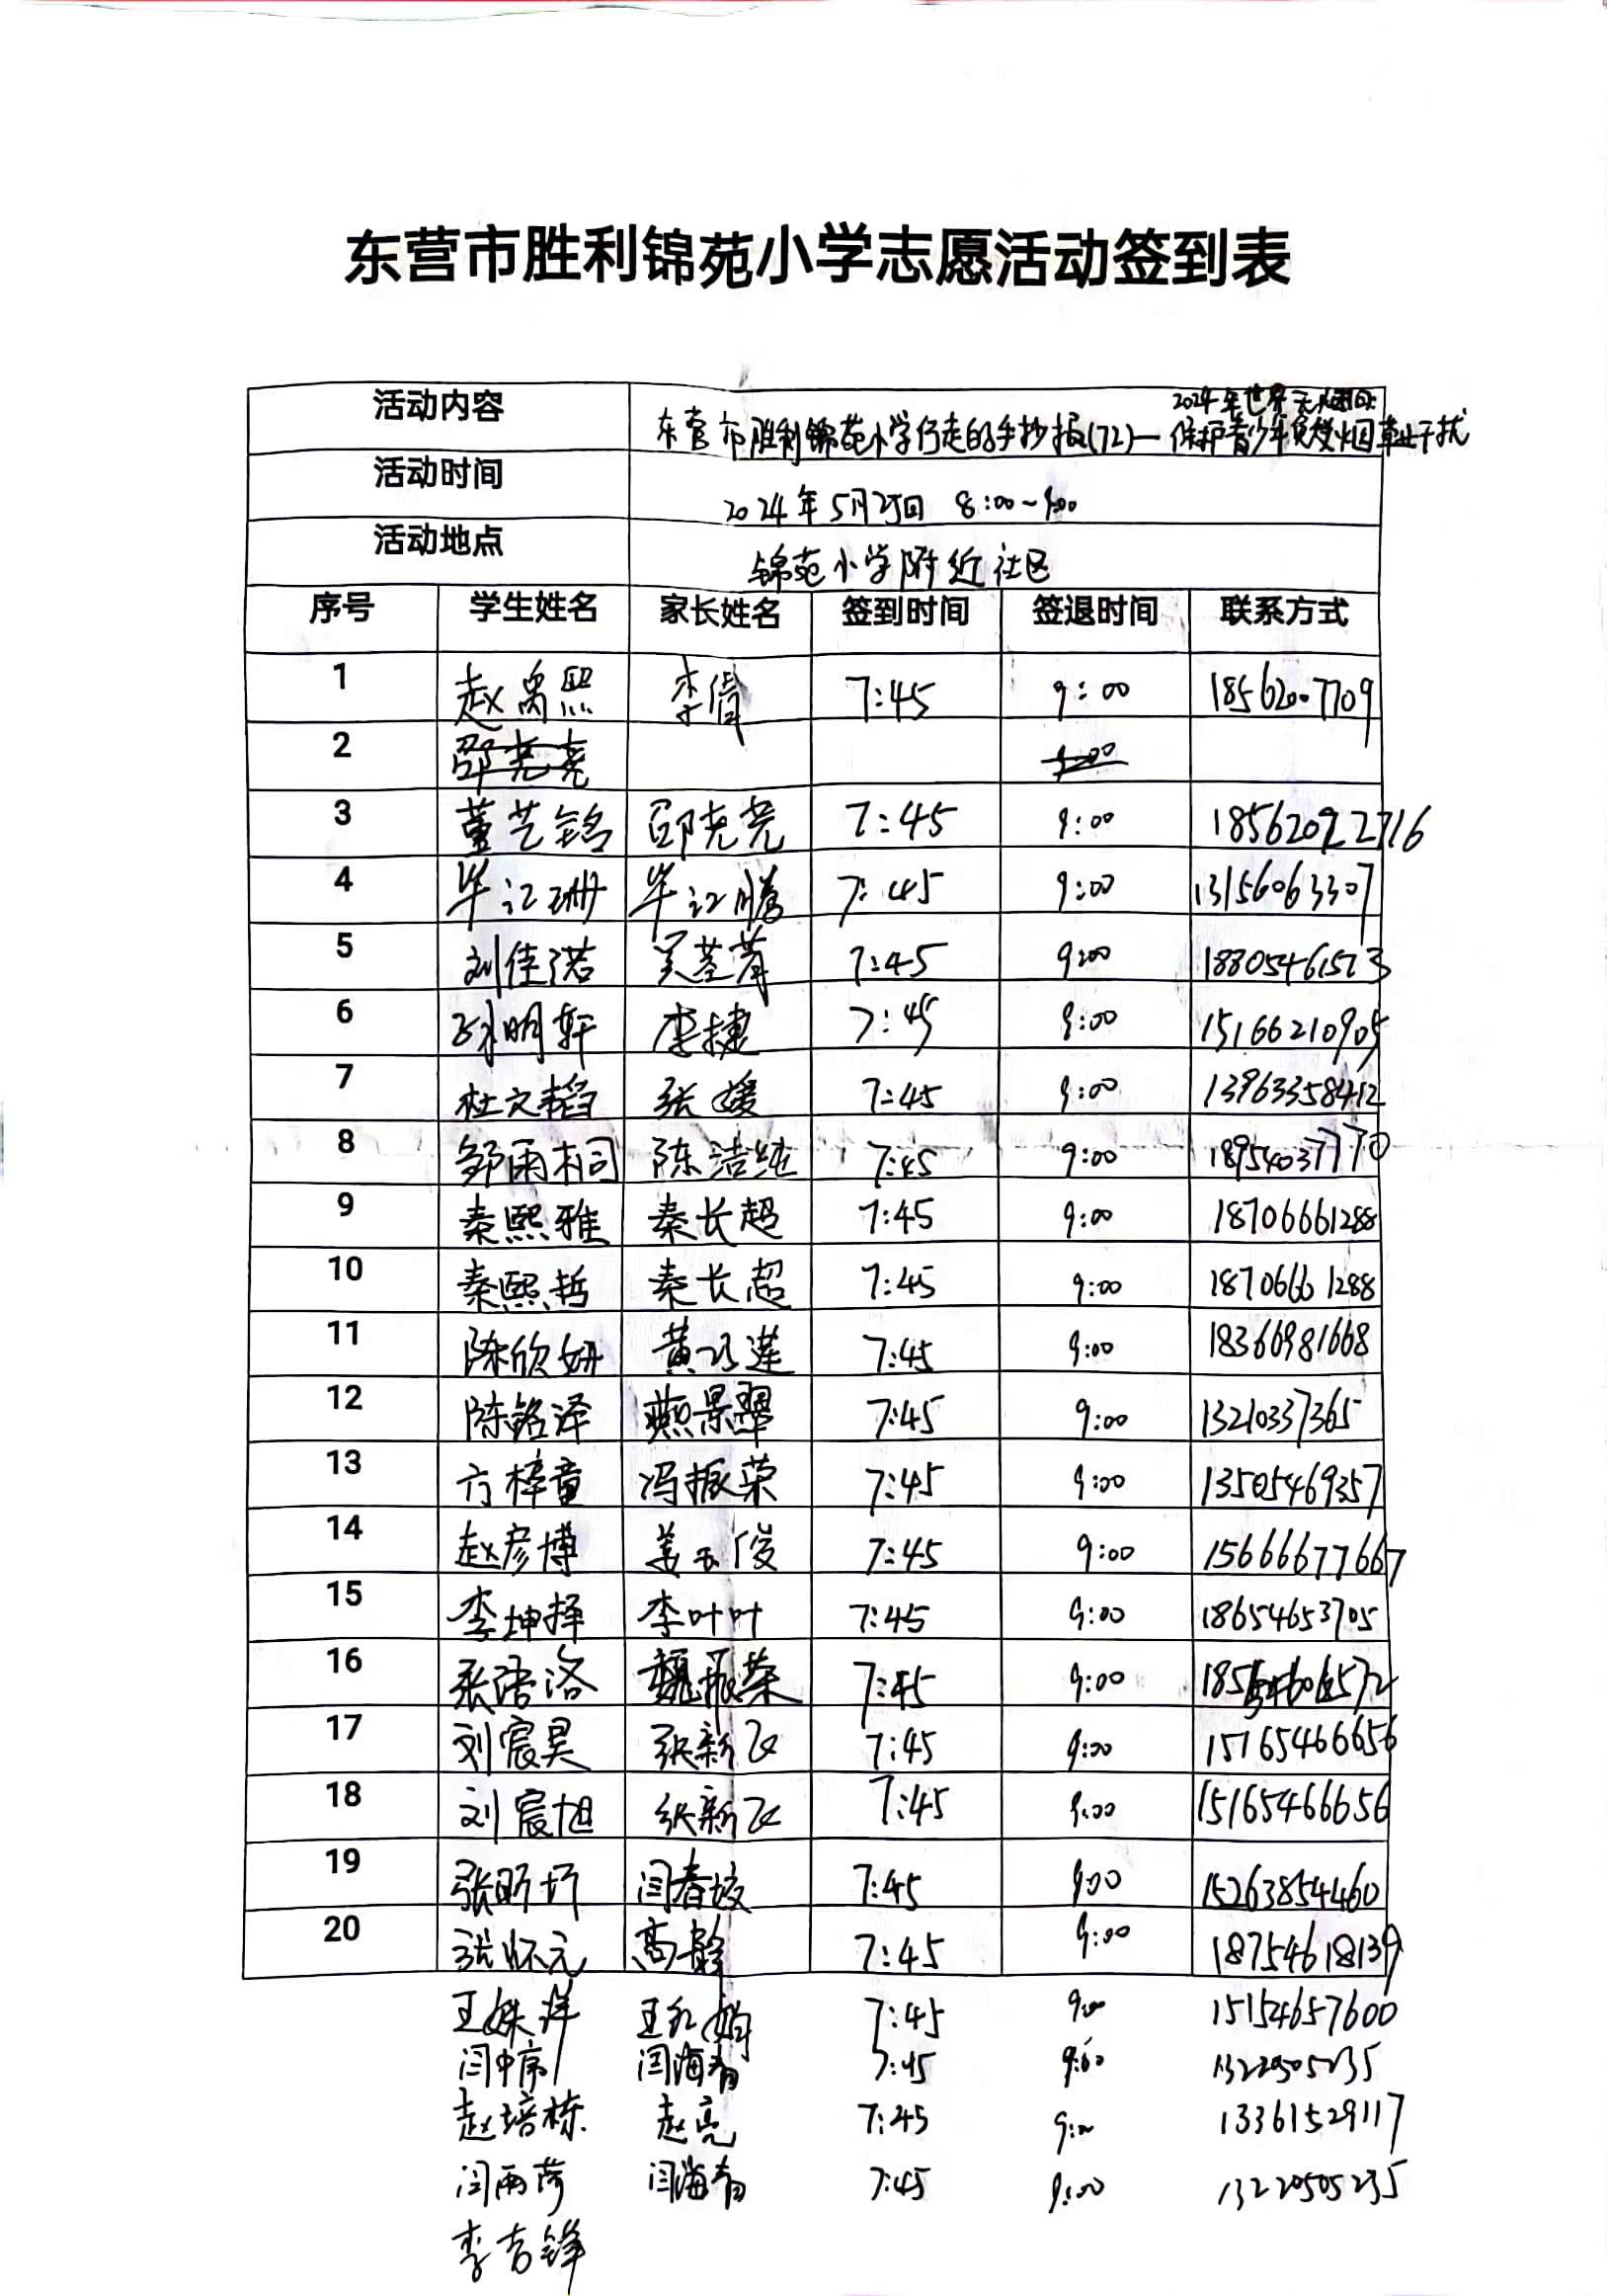 东营市胜利锦苑小学志愿活动签到表
2024年世界无烟日:
活动内容 东营市胜利锦苑小学行走的手抄报(72)—保护青少年免受烟草业干扰
活动时间 2024年5月25日 8:00~9:00
活动地点 锦苑小学附近社区
序号 学生姓名 家长姓名 签到时间 签退时间 联系方式
1 赵禹熙 李倩 7:45 9:00 18562007709
2 邵尧尧 9:00
3 董艺铭 邵尧尧 7:45 9:00 18562092716
4 毕江珊 毕江腾 7:45 9:00 13156063307
5 刘佳诺 7:45 9:00 18805461573
6 孙明轩 李捷 7:45 9:00 15166210905
7 杜文韬 张媛 7:45 9:00 13963358412
8 邹雨桐 陈洁纯 7:45 9:00 18954037770
9 秦熙雅 秦长超 7:45 9:00 18706661288
10 秦熙哲 秦长超 7:45 9:00 18706661288
11 陈欣妍 黄巧莲 7:45 9:00 18366981668
12 陈铭泽 燕景翠 7:45 9:00 13210337365
13 方梓童 冯振荣 7:45 9:00 13505469357
14 赵彦博 姜玉俊 7:45 9:00 15666677667
15 李坤择 李叶叶 7:45 9:00 18654653705
16 张语洛 魏振荣 7:45 9:00
17 刘宸昊 张新飞 7:45 9:00 15165466656
18 刘宸旭 张新飞 7:45 9:00 15165466656
19 张昕圻 闫春姣 7:45 9:00 15263854460
20 张怀元 高静 7:45 9:00 18754618139
王姝洋 王红娟 7:45 9:00 15154657600
闫中序 闫海青 7:45 9:00 13220505235
赵培栋 赵亮 7:45 9:00 13361529117
闫雨荷 闫海青 7:45 9:00 13220505235
李吉锋